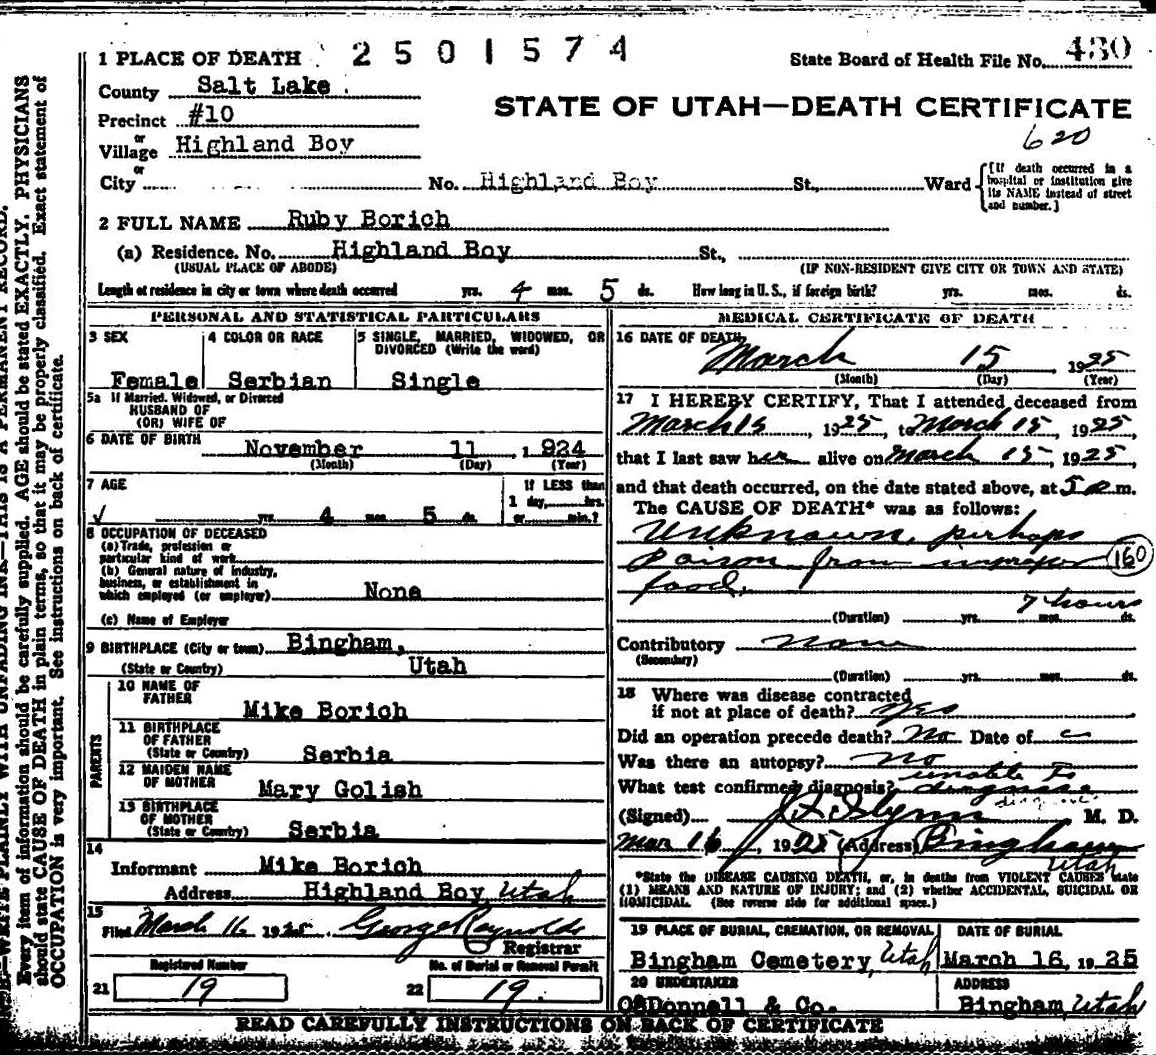 1 PLACE OF DEATH 2501574 State Board of Health File No. 430
County Salt Lake
STATE OF UTAH—DEATH CERTIFICATE
Precinct #10
620
or
Village Highland Boy
or
City No. Highland Boy St., Ward [If death occurred in a hospital or institution give its NAME instead of street and number.]
2 FULL NAME Ruby Borich
(a) Residence. No. Highland Boy St.,
(USUAL PLACE OF ABODE) (IF NON-RESIDENT GIVE CITY OR TOWN AND STATE)
Length of residence in city or town where death occurred yrs. 4 mos. 5 ds. How long in U. S., if foreign birth? yrs. mos. ds.
PERSONAL AND STATISTICAL PARTICULARS
3 SEX 4 COLOR OR RACE 5 SINGLE, MARRIED, WIDOWED, OR
DIVORCED (Write the word)
Female Serbian Single
5a If Married, Widowed, or Divorced
HUSBAND OF
(OR) WIFE OF
6 DATE OF BIRTH November 11, 1924
(Month) (Day) (Year)
7 AGE If LESS than
1 day, hrs.
yrs. 4 mos. 5 ds. or min.?
8 OCCUPATION OF DECEASED
(a) Trade, profession or
particular kind of work
(b) General nature of industry,
business, or establishment in
which employed (or employer) None
(c) Name of Employer
9 BIRTHPLACE (City or town) Bingham,
(State or Country) Utah
PARENTS
10 NAME OF
FATHER Mike Borich
11 BIRTHPLACE
OF FATHER
(State or Country) Serbia
12 MAIDEN NAME
OF MOTHER Mary Golish
13 BIRTHPLACE
OF MOTHER
(State or Country) Serbia
14
Informant Mike Borich
Address Highland Boy, Utah
15
Filed March 16 1925 George Reynolds
Registrar
Registered Number No. of Burial or Removal Permit
21 19 22 19.
MEDICAL CERTIFICATE OF DEATH
16 DATE OF DEATH
March 15 1925
(Month) (Day) (Year)
17 I HEREBY CERTIFY, That I attended deceased from
March 15, 1925, to March 15, 1925,
that I last saw her alive on March 15, 1925,
and that death occurred, on the date stated above, at 5 p.m.
The CAUSE OF DEATH* was as follows:
Unknown, perhaps
Poison from improper 160
food.
7 hours
(Duration) yrs. mos. ds.
Contributory None
(Secondary)
(Duration) yrs. mos. ds.
18 Where was disease contracted
if not at place of death? Yes
Did an operation precede death? No Date of
Was there an autopsy? No
unable to
What test confirmed diagnosis? diagnose
(Signed) M. D.
Mar 16, 1925 (Address) Bingham
Utah
*State the DISEASE CAUSING DEATH, or, in deaths from VIOLENT CAUSES state
(1) MEANS AND NATURE OF INJURY; and (2) whether ACCIDENTAL, SUICIDAL OR
HOMICIDAL. (See reverse side for additional space.)
19 PLACE OF BURIAL, CREMATION, OR REMOVAL DATE OF BURIAL
Bingham Cemetery, Utah March 16, 1925
20 UNDERTAKER ADDRESS
O'Donnell & Co. Bingham, Utah
READ CAREFULLY INSTRUCTIONS ON BACK OF CERTIFICATE
N. B.—WRITE PLAINLY WITH UNFADING INK—THIS IS A PERMANENT RECORD.
Every item of information should be carefully supplied. AGE should be stated EXACTLY. PHYSICIANS
should state CAUSE OF DEATH in plain terms, so that it may be properly classified. Exact statement of
OCCUPATION is very important. See instructions on back of certificate.